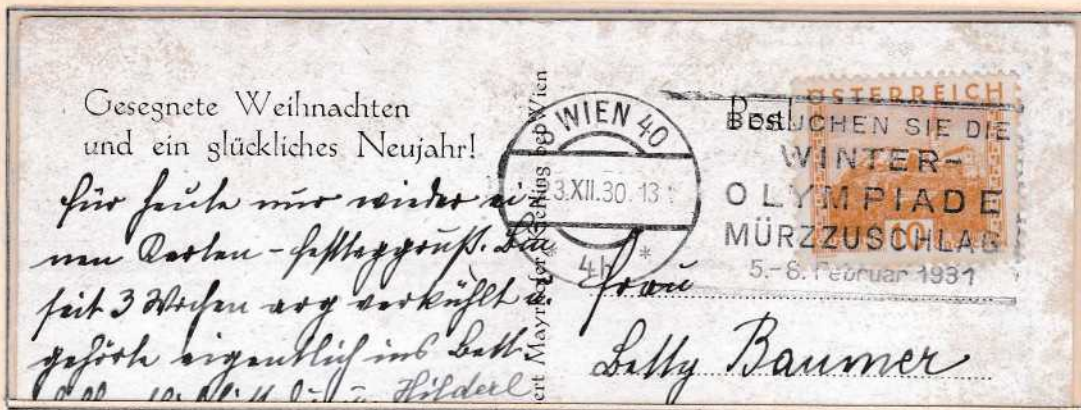 Gesegnete Weihnachten
und ein glückliches Neujahr!
für heute nur wieder ei
nen Karten-festtaggruß. Bin
seit 3 Wochen arg verkühlt u.
gehörte eigentlich ins Bett.
Hilderl
ert Mayr bei Wien
WIEN 40
3.XII.30.13
* 4h *
Post
ÖSTERREICH
BESUCHEN SIE DIE
WINTER-
OLYMPIADE
MÜRZZUSCHLAG
5.-8. Februar 1931
10
Frau
Betty Baumer